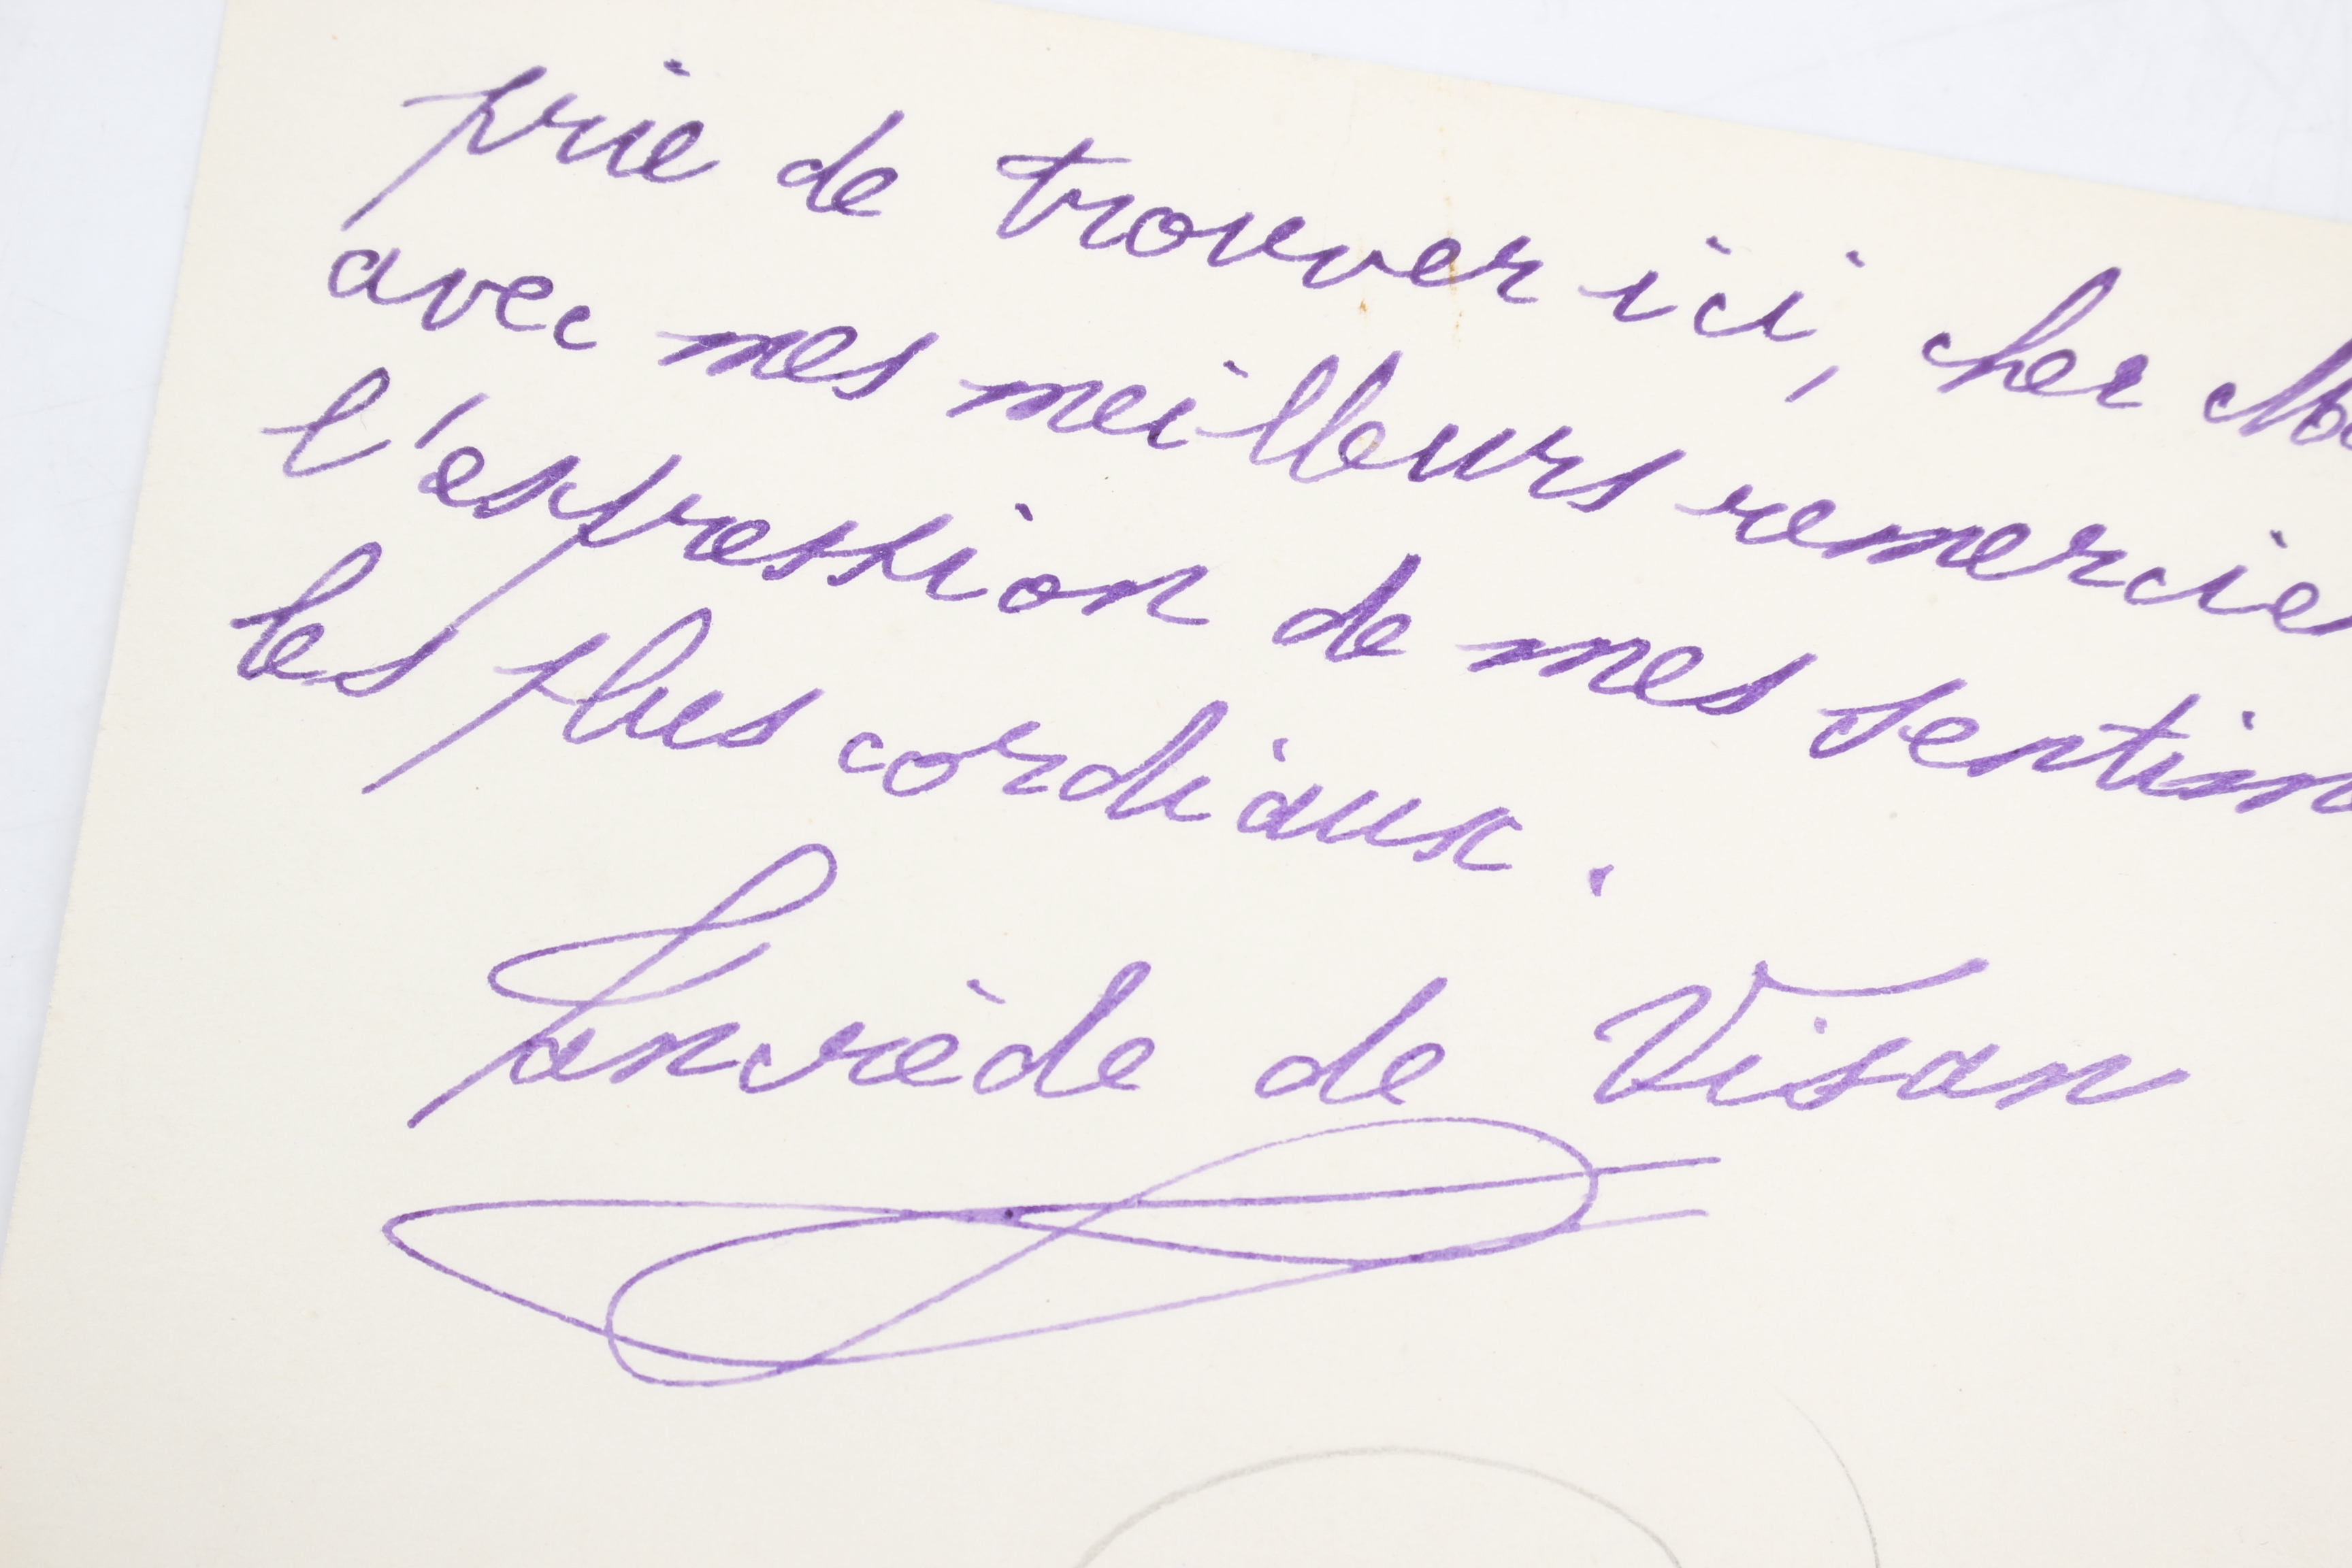 prie de trouver ici, cher Mo
avec mes meilleurs remercie
l'expression de mes sentim
les plus cordiaux.
Tancrède de Visan